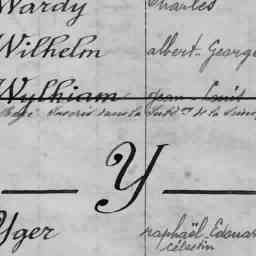 Wardy Charles
Wilhelm albert-George
Wylhiam Jean Louis
dans la de la
Y
Yger raphaël Edouar
célestin